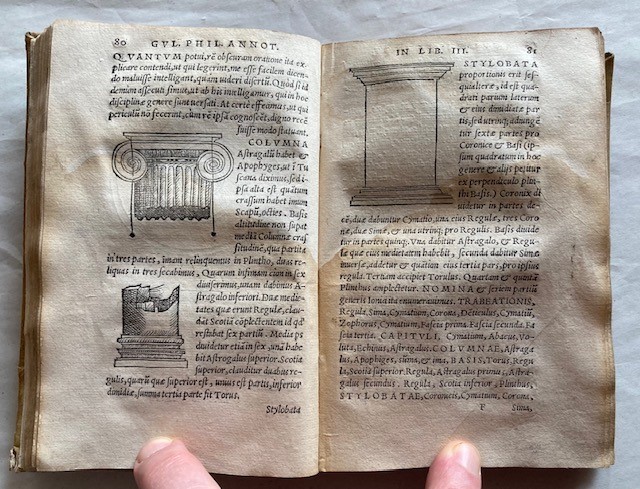 80 GVL. PHIL. ANNOT.
QVANTVM potui, rē obscuram oratione ita ex
plicare contendi, ut qui legerint, me esse facilem dicen
do maluisse intelligant, quàm uideri disertũ. Quòd si id
demùm assecuti simus, ut ab his intelligamur, qui in hoc
disciplinæ genere sunt uersati. At certè effecimus, ut qui
periculũ nõ fecerint, cum rē ipsã cognoscēt, digno recē
suisse modo statuant.
COLVMNA
Astragalũ habet &
Apophyges, ut ĩ Tu
scana diximus, sed i-
psa alta est quãtum
crassum habet imum
Scapũ, octies. Basis
altitudine non supat
mediã Columnæ cras
situdinē, qua partita
in tres partes, imam relinquemus in Plintho, duas re-
liquas in tres secabimus, Quarum infimam cùm in sex
diuiserimus, unam dabimus A-
stragalo inferiori. Duæ medie-
tates quæ erunt Regulæ, clau-
dãt Scotiã cõplectentem id qd
restabat sex partiũ. Media ps
diuidetur etiã in sex, unã habe
bit Astragalus superior. Scotia
superior, clauditur duabus re-
gulis, quarũ quæ superior est, unius est partis, inferior
dimidiæ, summa tertia parte fit Torus.
Stylobata
IN LIB. III. 81
STYLOBATA
proportionis erit ses-
quialteræ, id est qua
drati parum laterum
& eius dimidiatæ par
tis, sed utrinq; adiungē
tur sextæ partes pro
Coronice & Basi (ip-
sum quadratum in hoc
genere & alijs petitur
ex perpendiculo plin-
thi Basis.) Coronix di
uidetur in partes, de
cē, duæ dabuntur Cymatio, una eius Regulæ, tres Coro
næ, duæ Simæ, & una utrinq; pro Regulis. Basis diuide
tur in partes quinq;. Vna dabitur Astragalo, & Regu-
læ quæ eius medietatem habebit, secunda dabitur Simæ
inuersæ, addetur & quãtum eius tertia pars, pro ipsius
regula. Tertiam accipit Torulus. Quartam & quintã
Plinthus amplectetur. NOMINA & seriem partiũ
generis Ionici hic enumerauimus. TRABEATIONIS,
Regula, Sima, Cymatium, Corona, Dēticulus, Cymatiũ,
Zophorus, Cymatium, Fascia prima. Fascia secunda. Fa
scia tertia. CAPITVLI, Cymatium, Abacus, Vo-
luta, Echinus, Astragalus. COLVMNAE, Astraga
lus, Apophiges, suma, & ima, BASIS, Torus. Regu
la, Scotia superior. Regula, Astragalus primus, Astra-
galus secundus, Regula, Scotia inferior, Plinthus,
STYLOBATAE, Coronicis, Cymatium, Corona,
F Sima,